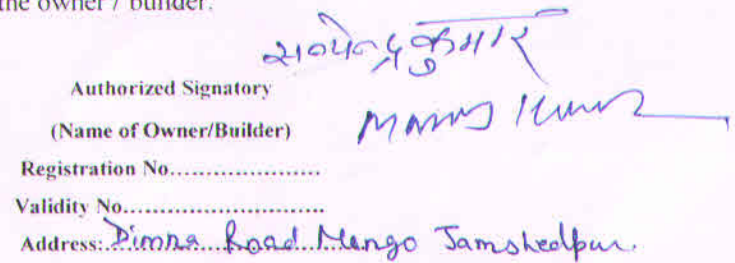 the owner / builder.
कुमार
Authorized Signatory
(Name of Owner/Builder)
Registration No.....................
Validity No............................
Address: Dimna Road Mango Jamshedpur.